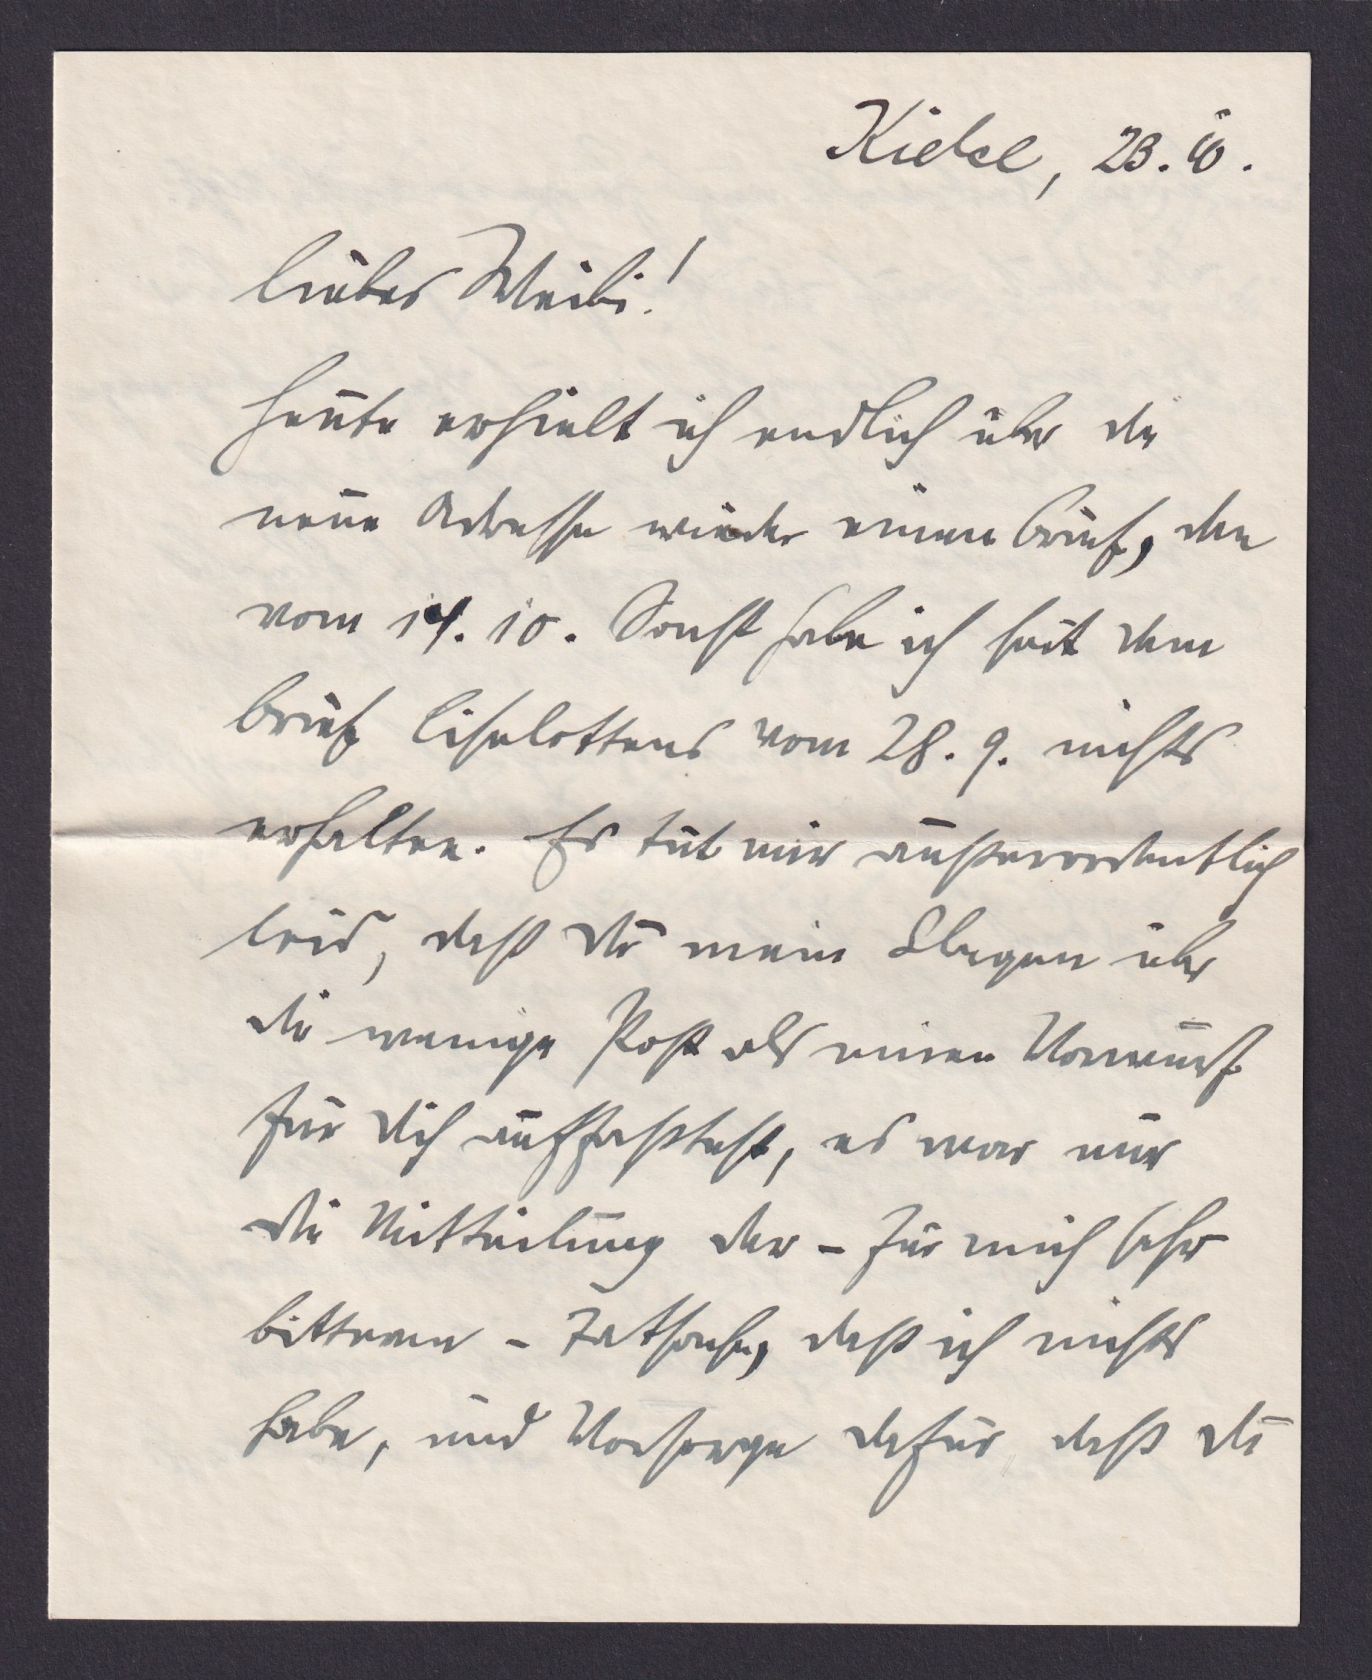 Kiebel, 23.10.
Liebes Weibi!
Heute erhielt ich endlich über die
neue Adresse wieder einen Brief, den
vom 14.10. Sonst habe ich seit dem
Brief Liselottens vom 28.9. nichts
erhalten. Es tut mir außerordentlich
leid, daß Du mein Klagen über
die wenige Post als einen Vorwurf
für Dich auffaßtest, es war nur
die Mitteilung der - für mich sehr
bitteren - Tatsache, daß ich nichts
habe, und Vorsorge dafür, daß Du